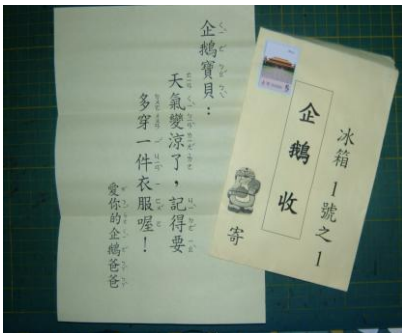 企鵝寶貝：
天氣變涼了，記得要
多穿一件衣服喔！
愛你的企鵝爸爸
冰箱1號之1
企鵝收
寄
5